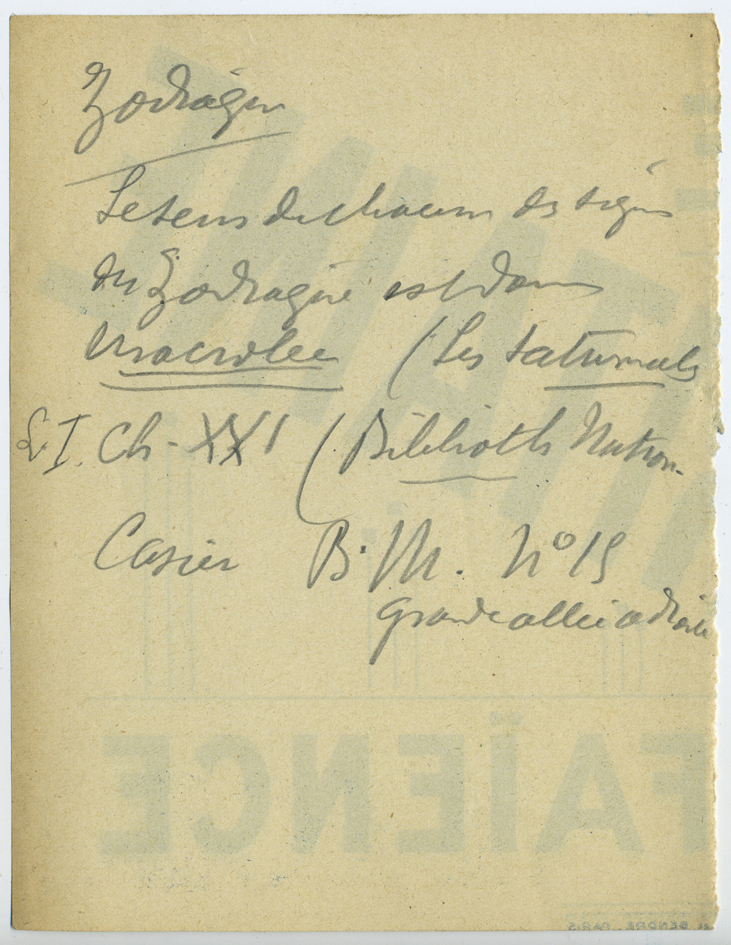 Zodiaque
Le sens de chacun des signes
du Zodiaque est dans
Macrobe (Les Saturnales
L I. Ch - XXI (Biblioth Nation.
Casier B. M. N° 15
Grande allée à droite
FAÏENCE